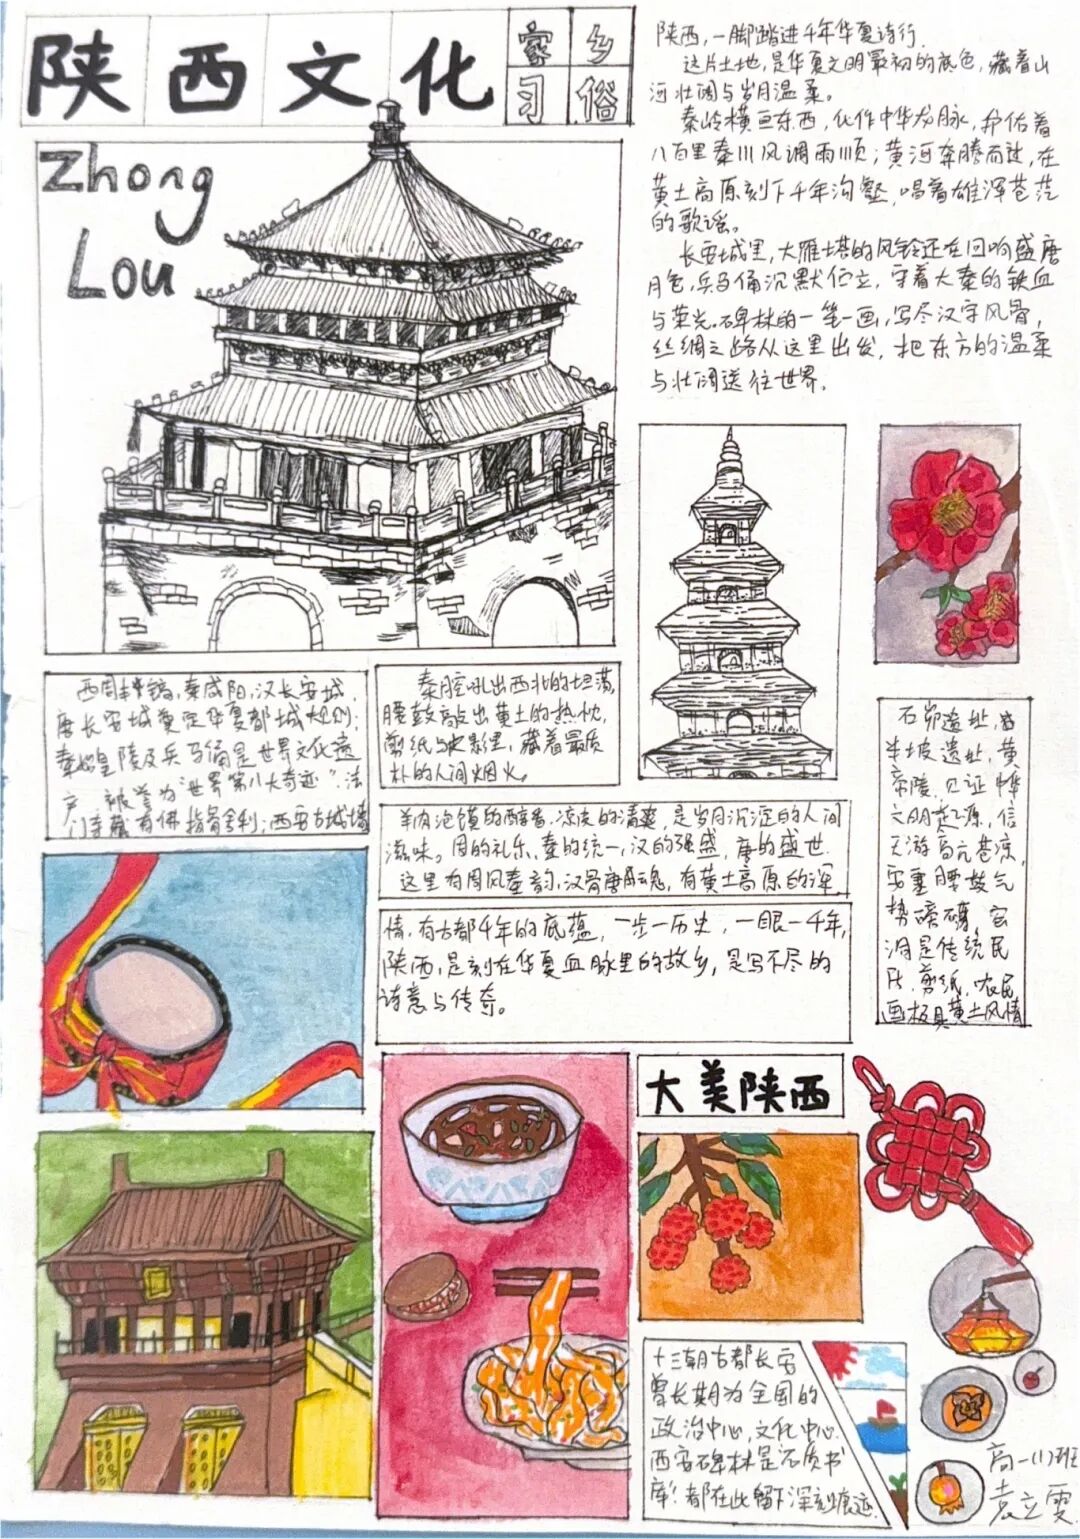 陕西文化
家乡
习俗
Zhong
Lou
陕西,一脚踏进千年华夏诗行.
这片土地,是华夏文明最初的底色,藏着山
河壮阔与岁月温柔。
秦岭横亘东西,化作中华龙脉,护佑着
八百里秦川风调雨顺;黄河奔腾而过,在
黄土高原刻下千年沟壑,唱着雄浑苍茫
的歌谣。
长安城里,大雁塔的风铃还在回响盛唐
月色,兵马俑沉默伫立,守着大秦的铁血
与荣光.碑林的一笔一画,写尽汉字风骨,
丝绸之路从这里出发,把东方的温柔
与壮阔送往世界.
西周丰镐,秦咸阳,汉长安城,
唐长安城奠定华夏都城规则;
秦始皇陵及兵马俑是世界文化遗
产,被誉为"世界第八大奇迹".法
门寺藏有佛指骨舍利;西安古城墙
秦腔吼出西北的坦荡,
腰鼓敲出黄土的热忱,
剪纸与皮影里,藏着最质
朴的人间烟火。
羊肉泡馍的醇香,凉皮的清爽,是岁月沉淀的人间
滋味。周的礼乐,秦的统一,汉的强盛,唐的盛世.
这里有周风秦韵,汉骨唐魂,有黄土高原的深
情,有古都千年的底蕴,一步一历史,一眼一千年,
陕西,是刻在华夏血脉里的故乡,是写不尽的
诗意与传奇。
石峁遗址,
半坡遗址,黄
帝陵,见证中华
文明起源,信
天游高亢苍凉,
安塞腰鼓气
势磅礴,窑
洞是传统民
居,剪纸,农民
画极具黄土风情
大美陕西
十三朝古都长安
曾长期为全国的
政治中心,文化中心.
西安碑林是石质书
库!都在此留下深刻痕迹.
高一(1)班
袁立雯